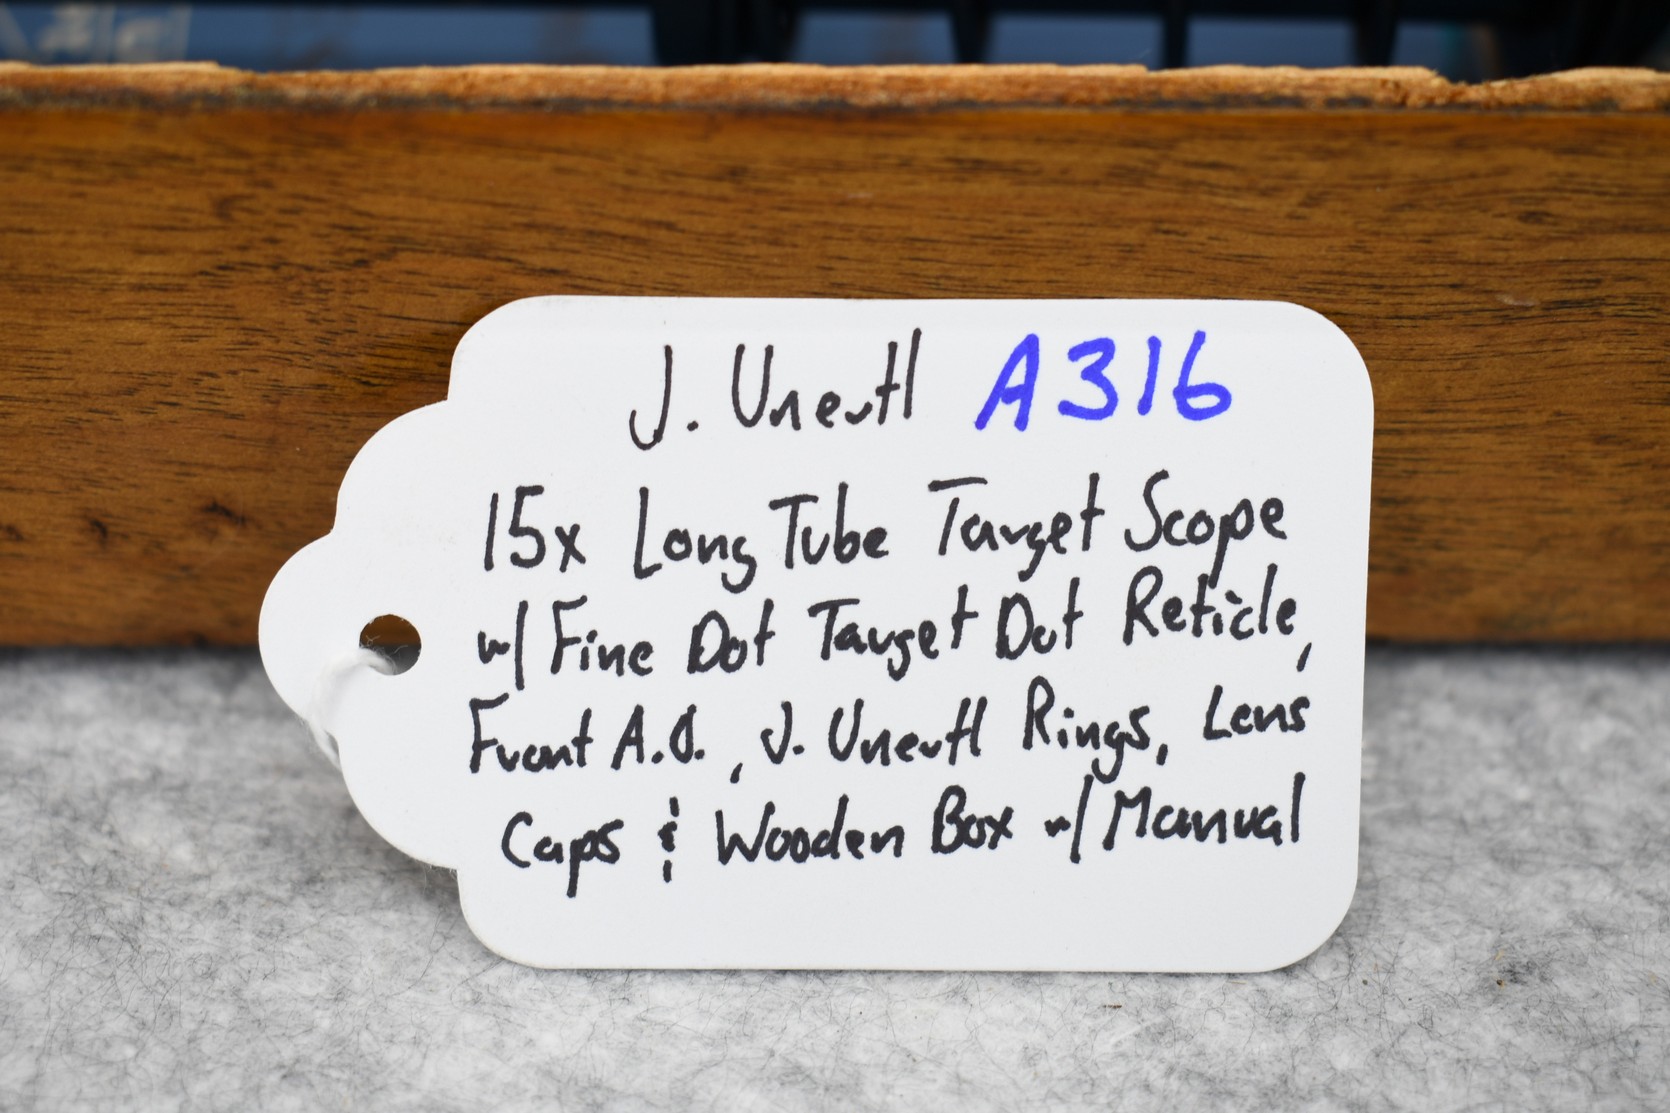 J. Unertl A316
15x Long Tube Target Scope
w/ Fine Dot Target Dot Reticle,
Front A.O., J. Unertl Rings, Lens
Caps & Wooden Box w/ Manual